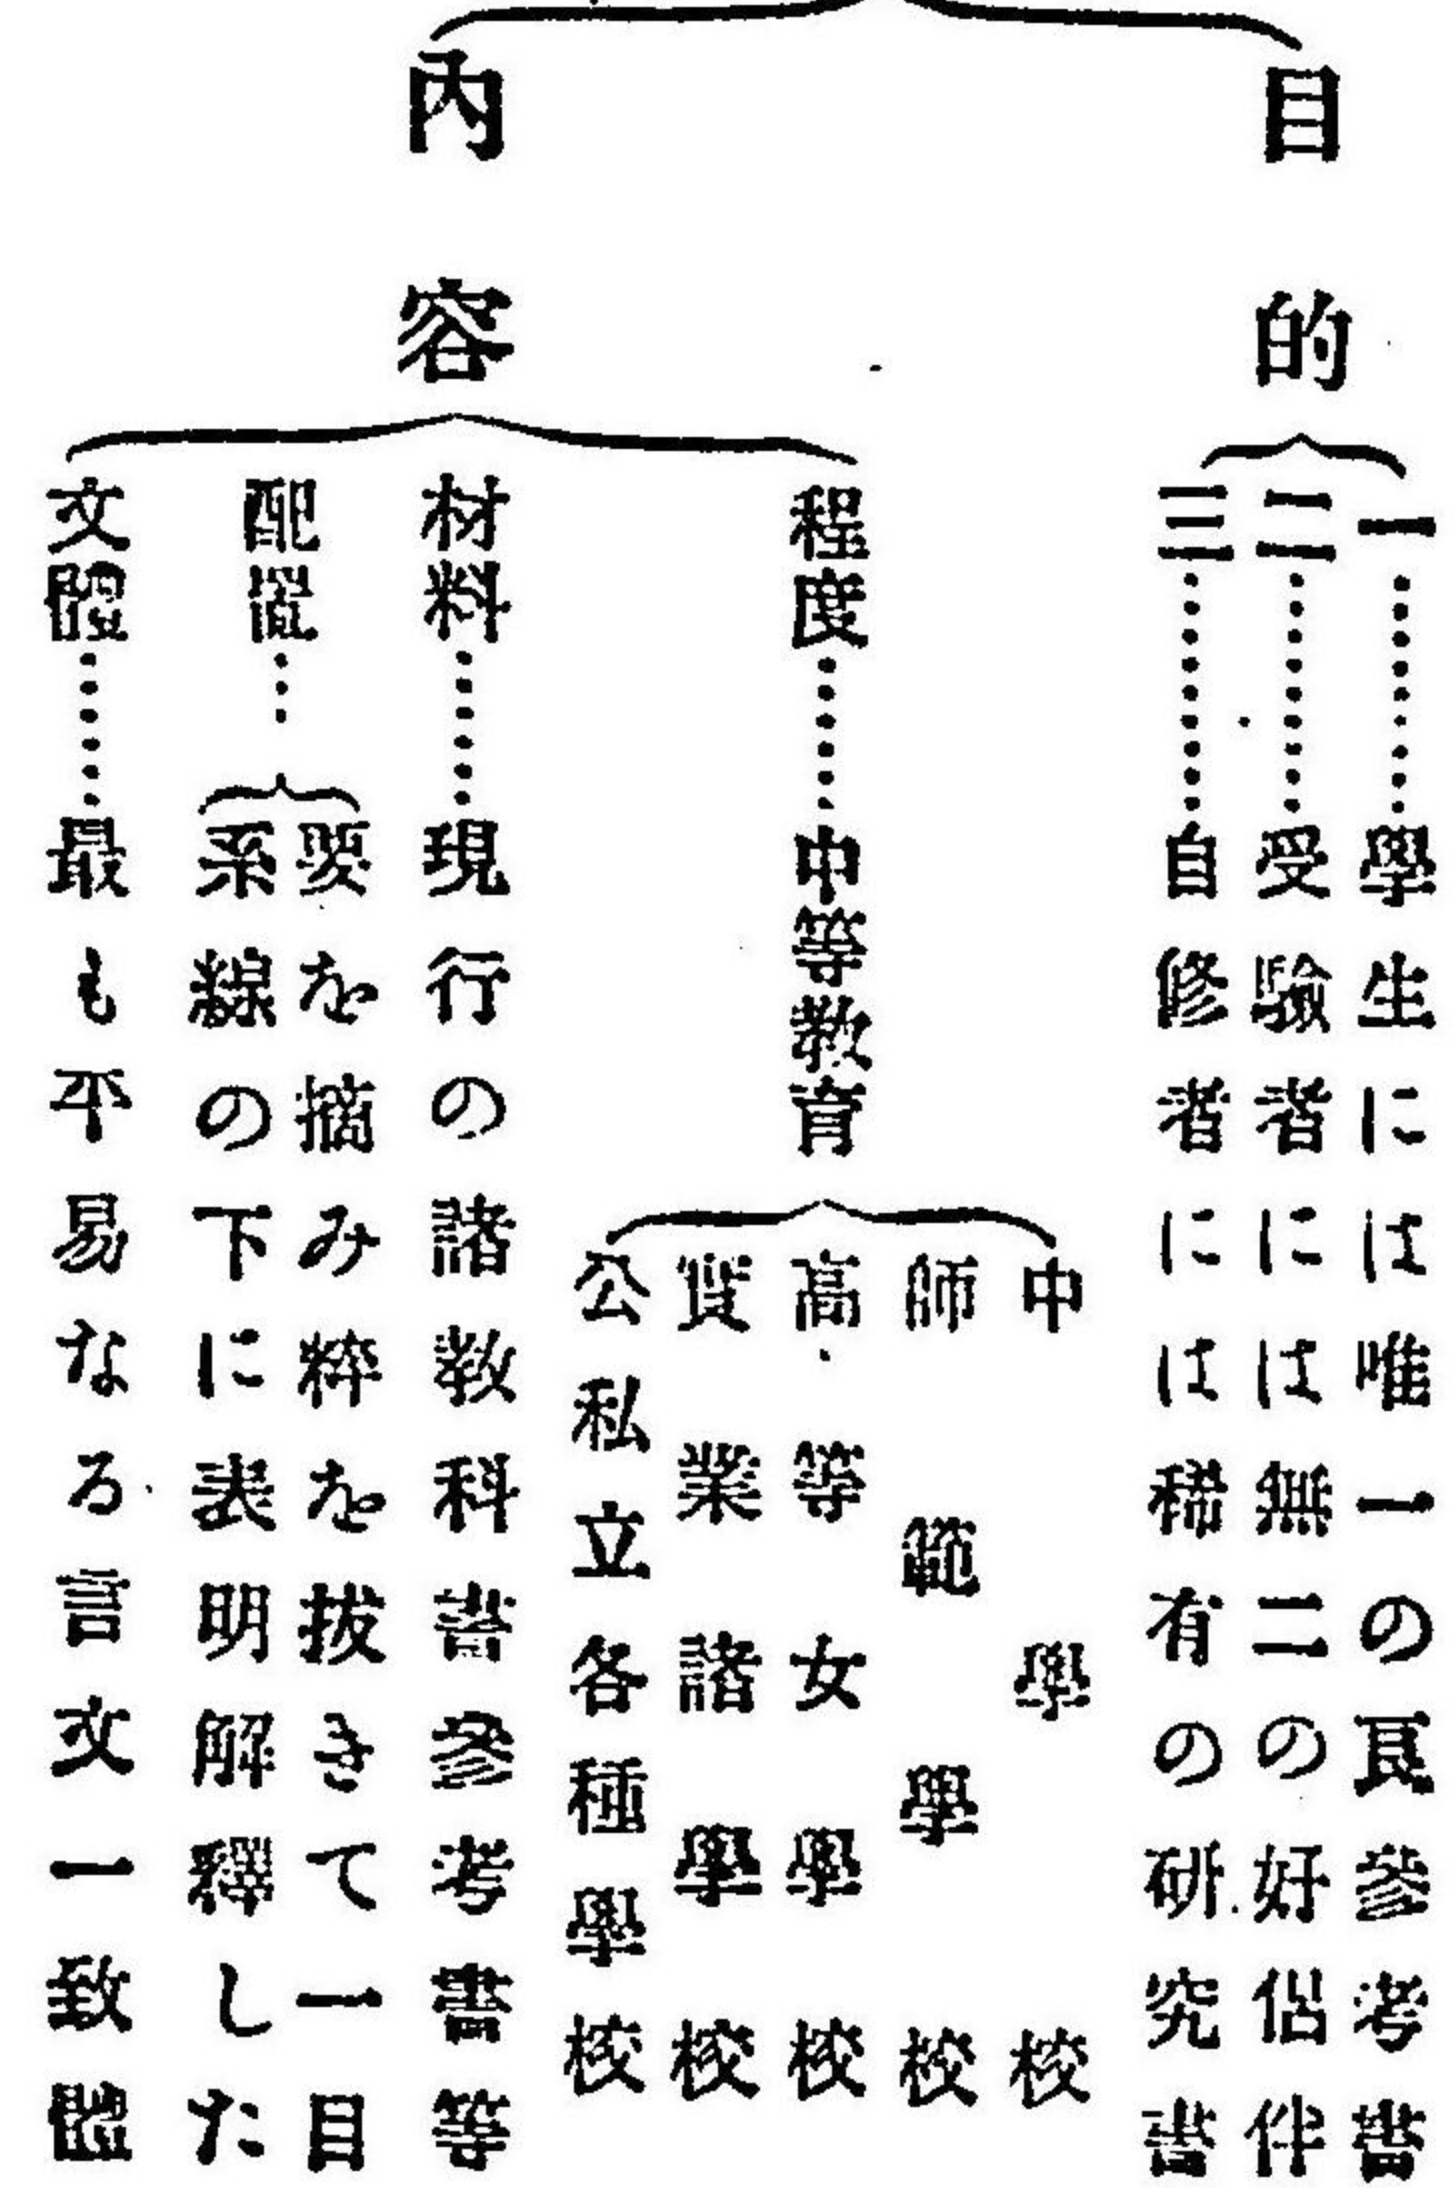 目的
一………學生には唯一の良參考書
二………受驗者には無二の好侶伴
三………自修者には稀有の研究書
內容
程度……中等教育
中學校
師範學校
高等女學校
實業諸學校
公私立各種學校
材料……現行の諸教科書參考書等
配置…
要を摘み粹を拔きて一目
系線の下に表明解釋した
文體……最も平易なる言文一致體